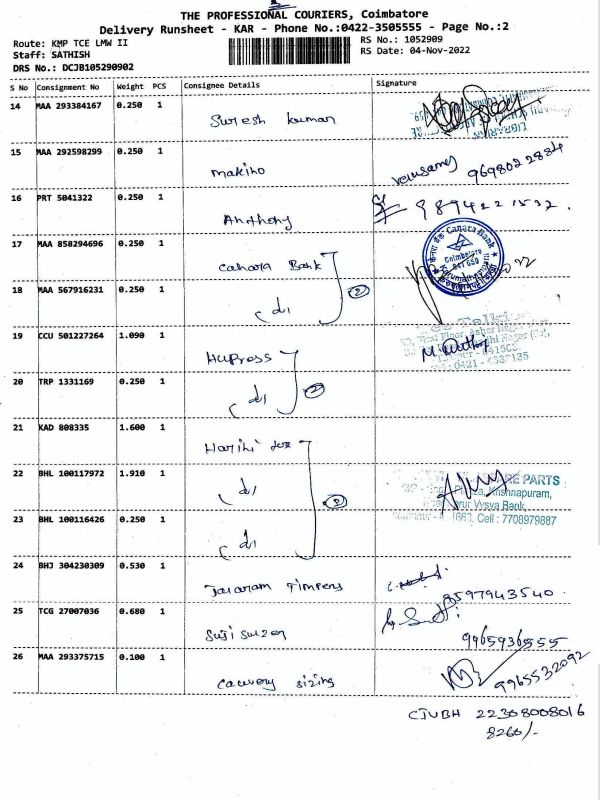 THE PROFESSIONAL COURIERS, Coimbatore
Delivery Runsheet - KAR - Phone No.:0422-3505555 - Page No.:2
Route: KMP TCE LMW II
RS No.: 1052909
Staff: SATHISH
RS Date: 04-Nov-2022
DRS No.: DCJB105290902
S No Consignment No Weight PCS Consignee Details Signature
14 MAA 293384167 0.250 1
Suresh kumar
15 MAA 292598299 0.250 1
makino
9698022884
16 PRT 5041322 0.250 1
Anthony
9894221532.
17 MAA 858294696 0.250 1
Canara Bank
Canara Bank
Coimbatore
18 MAA 567916231 0.250 1
(di
2
19 CCU 501227264 1.090 1
20 TRP 1331169 0.250 1
(di
2
21 KAD 808335 1.600 1
22 BHL 100117972 1.910 1
(di
PARTS
Krishnapuram,
Vysya Bank,
Cell : 7708979887
23 BHL 100116426 0.250 1
(di
24 BHJ 304230309 0.530 1
8597943540
25 TCG 27007036 0.680 1
9965936555
26 MAA 293375715 0.100 1
cauvery sizing
9965532092
CJUBH 22308008016
8260/-